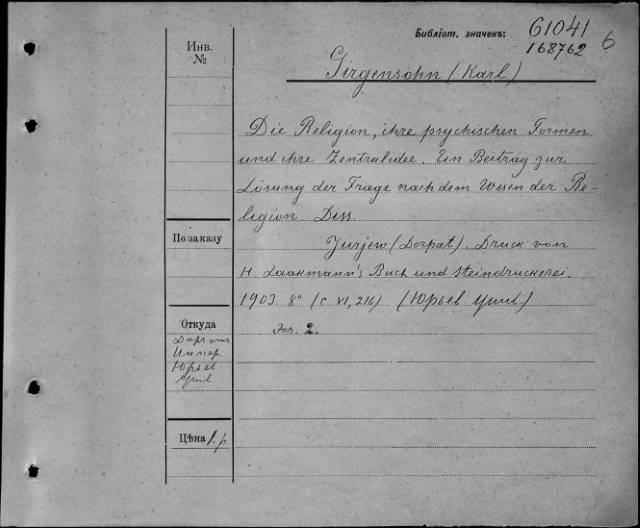 Библіот. значекъ: 61041
168762 6
Инв.
№
Girgensohn (Karl)
Die Religion, ihre psychischen Formen
und ihre Zentralidee. Ein Beitrag zur
Lösung der Frage nach dem Wesen der Re-
ligion. Diss.
По заказу
Jurjew (Dorpat). Druck von
H. Laakmann's Buch und Steindruckerei.
1903. 8° (С. VI, 216) (Юрьев
Откуда
Экз. 2.
Дар от
Импер.
Юрьев
Цѣна 1 р.